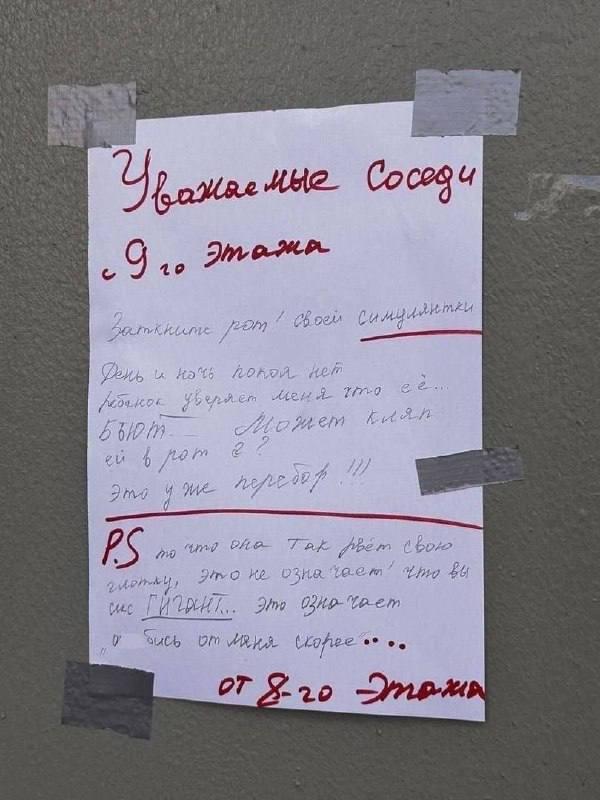 Уважаемые соседи
с 9го этажа
Заткните рот! своей симулянтки
День и ночь покоя нет
ребёнок уверяет меня что её...
БЬЮТ... Может кляп
ей в рот а?
Это уже перебор!!!
P.S то что она так рвёт свою
глотку, это не означает! что вы
секс ГИГАНТ... это означает
"о бись от меня скорее"....
от 8-го этажа